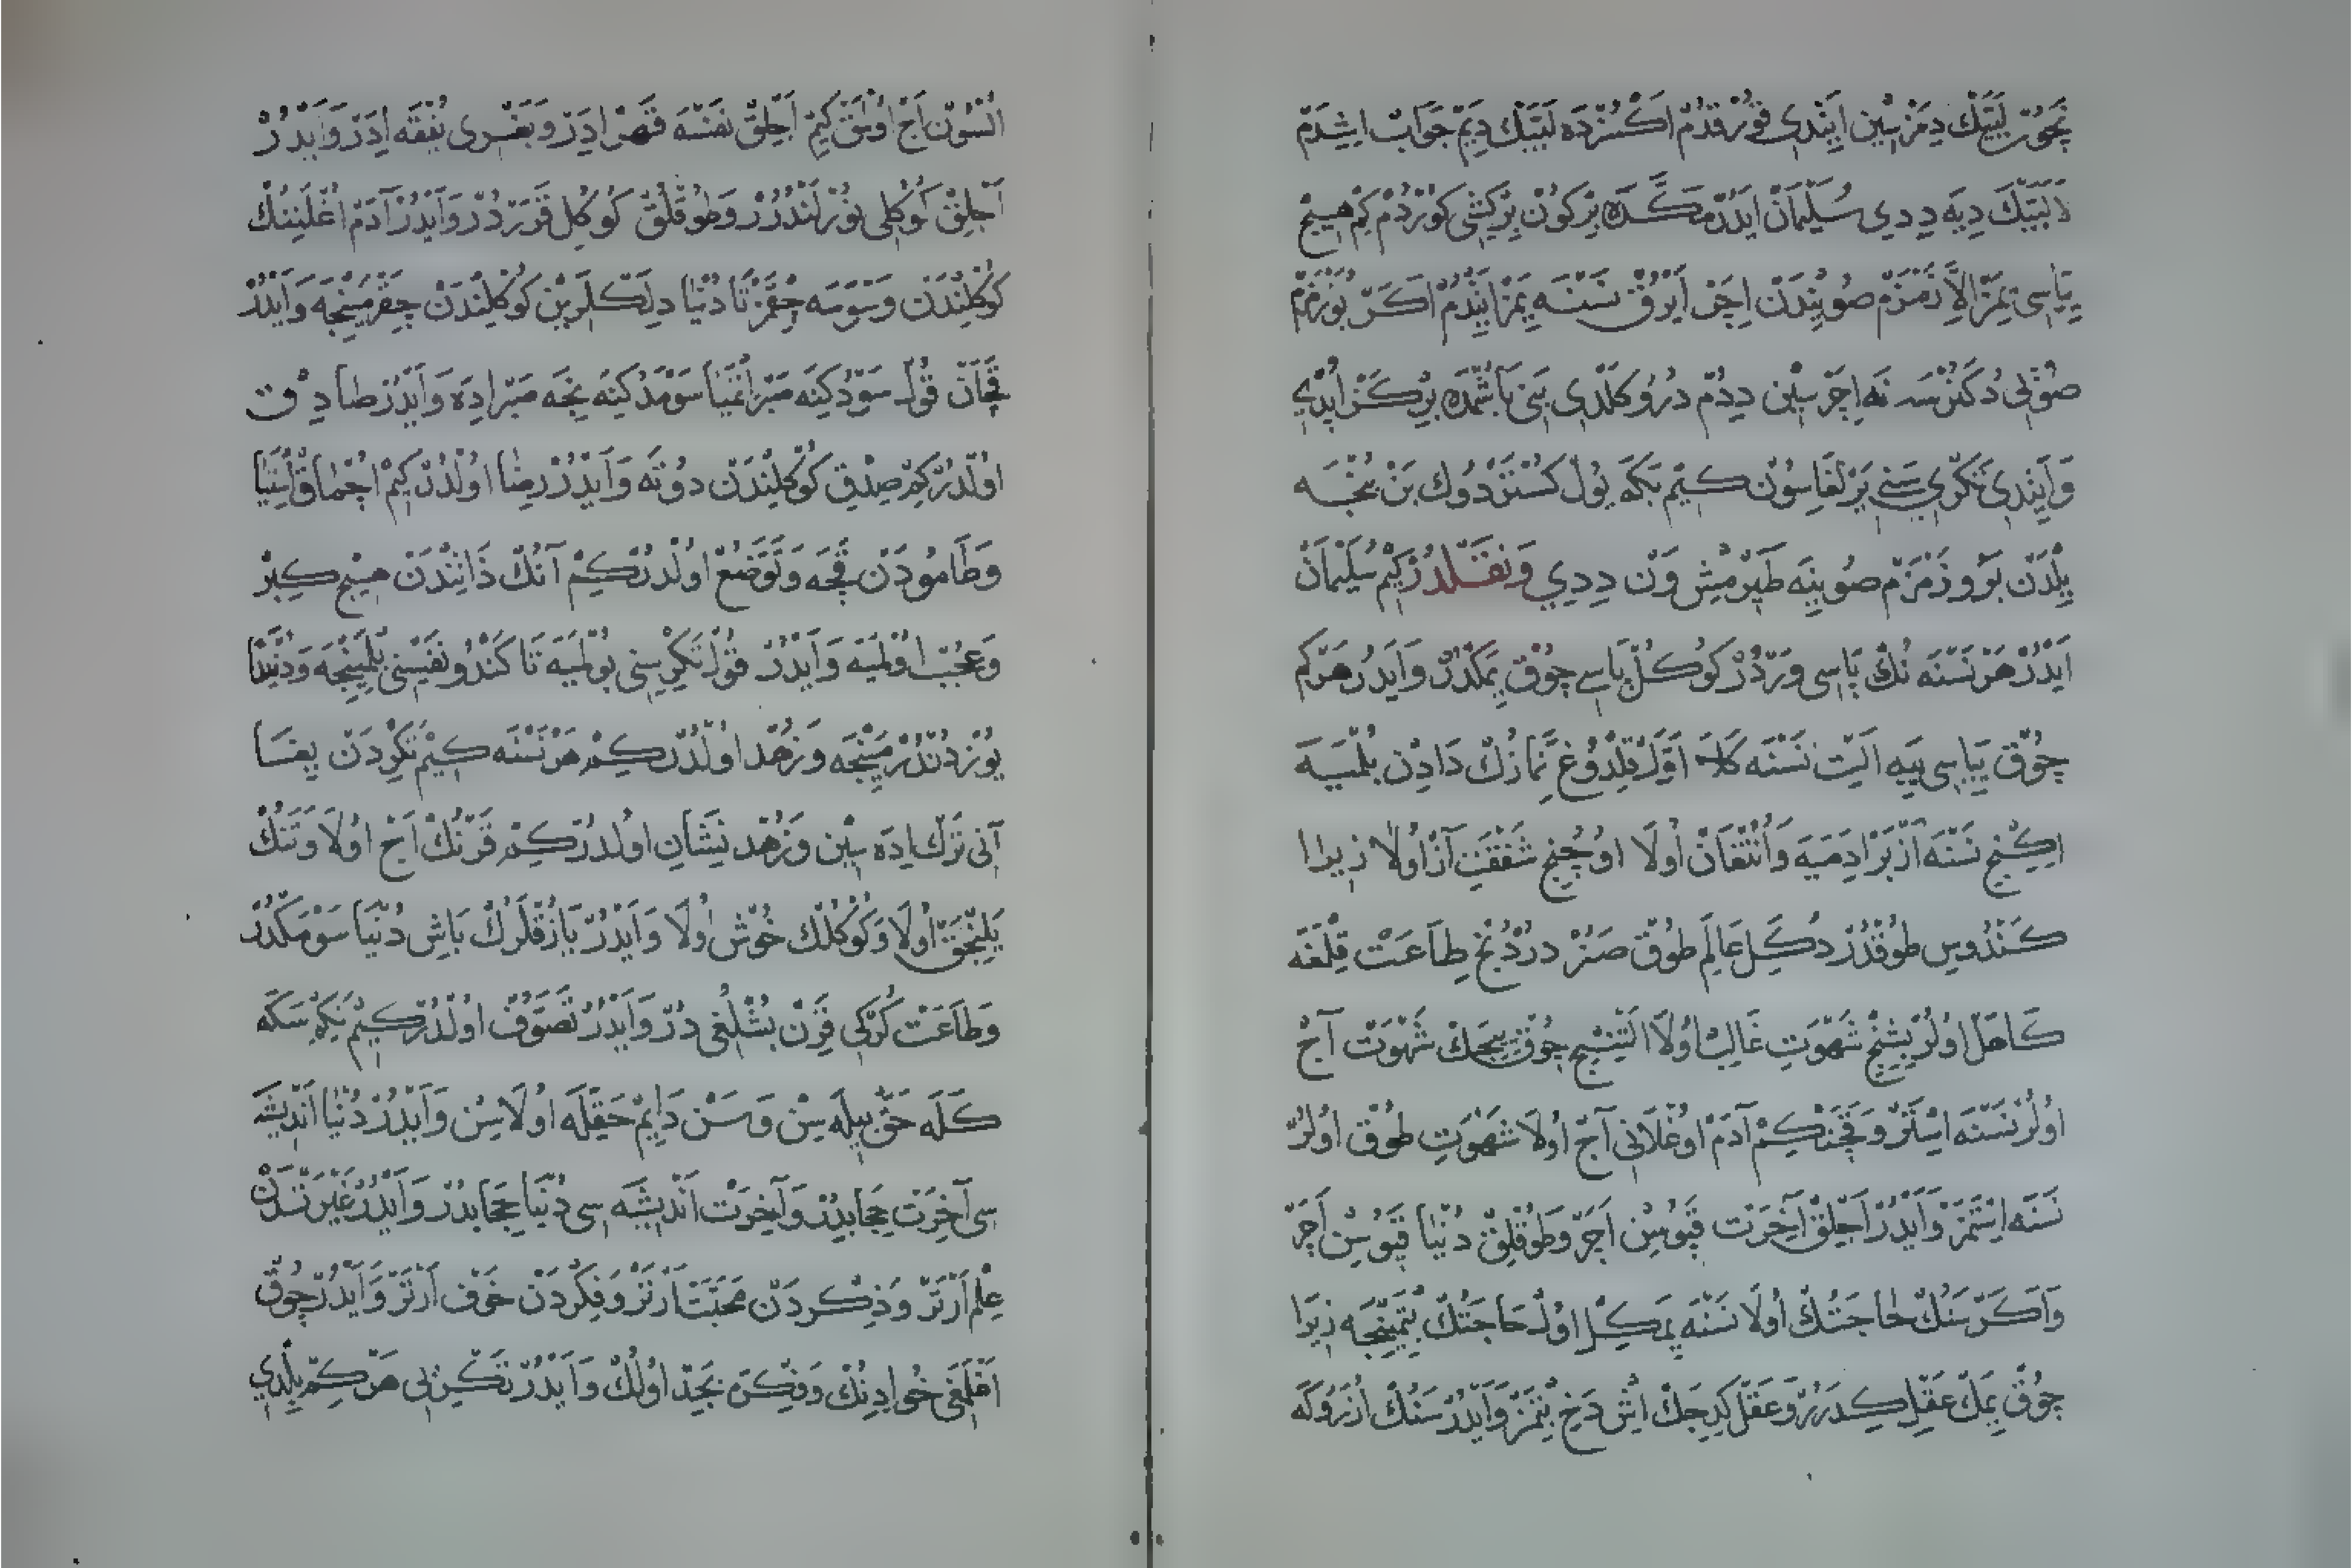 نچون لَبَّيْكَ دِمَزْسِينْ اَيِتْدِي قُورْقَدُمْ اَكْسُزْدَه لَبَّيْكَ دِيَمْ جَوَابْ اِشِدَمْ
لَا لَبَّيْكَ دِيَه دِدِي سُلَيْمَانْ اَيْدُرْ مَكَّدَه بِرْ كُونْ بِرْ كِشِي كُورْدُمْ كِمْ هِيچْ
يِيَاسِي يِمَزْ اِلَّا زَمْزَمْ صُويِنْدَنْ اِچَرْ اَيْرُقْ نَسْنَه يِمَزْ اَيِتْدُمْ اَكَرْ بُو زَمْزَمْ
صُويِي دُكَنُرْسَه نَه اِچَرْسِينْ دِدُمْ دُرُو كَلْدِي بَنِي بَاشُمْدَه بِرْ كَزْ اُپْدِي
وَ اَيِتْدِي تَكْرِي سَنِي يَرْلِغَاسُونْ كِيمْ بَكَه يُولْ كُسْتَرْدُوكْ بَنْ نِچَه
يِلْدَنْ بَرُو زَمْزَمْ صُويِنَه طَپَرْمِشْ وَنْ دِدِي وَ نَقْلْدُرْ كِيمْ سُلَيْمَانْ
اَيْدُرْ هَرْ نَسْنَه نُكْ پَاسِي وَرْدُرْ كُوكُلْ پَاسِي چُوقْ يِمَكْدُرْ وَ اَيْدُرْ هَرْ كِمْ
چُوقْ يِيَاسِي يِيَه اَلْتِ نَسْنَه كَلَه اَوَّلْ قِلْدُوغِ نَمَازُكْ دَادِنْ بُلْمَيَه
اِكِنْجِ نَسْنَه اَزْبَرْ اِدِمَيَه وَ اُنُتْقَانْ اُولَا اُوچُنْجِ شَفْقَتِ اَزْ اُولَا زِيرَا
كَنْدُوسِ طُوقْدُرْ دُكَلِ عَالَمِ طُوقْ صَنُرْ دُرْدُنْجِ طَاعَتْ قِلْمَغَه
كَاهِلْ اُولُرْ بَشِنْجِ شَهْوَتِ غَالِبْ اُولَا اَلْتِنْجِ چُوقْ يِيجَكْ شَهْوَتْ آجْ
اُولُرْ نَسْنَه اِسْتَرْ وَ قَچَنْ كِمْ آدَمْ اُوغْلَانِي آجْ اُولَا شَهْوَتِ طُوقْ اُولُرْ
نَسْنَه اِسْتَمَزْ وَ اَيْدُرْ اَجْلِقْ آخِرَتْ قَپُوسِنْ اَچَرْ وَ طُوقْلِقْ دُنْيَا قَپُوسِنْ اَچَرْ
وَ اَكَرْ سَنُكْ حَاجَتُكْ اُولَا نَسْنَه يِمَكِلْ اُولْ حَاجَتُكْ بِتْمَيِنْجَه زِيرَا
چُوقْ يِمَكْ عَقْلِ كِدَرُرْ وَ عَقْلْ كِدِجَكْ اِشْ دَخِ بِتْمَزْ وَ اَيْدُرْ سَنُكْ اُزَرُوكَه
اُلْسُونْ اَجْ اُولْمَقْ كِيمْ اَجْلِقْ نَفْسَه قَهْرْ اِدَرْ وَ بَغْرِي يُفْقَه اِدَرْ وَ اَيْدُرْ
اَجْلِقْ كُوكُلِي نُورْلَنْدُرُرْ وَ طُوقْلُقْ كُوكُلْ قَرَرْدُرْ وَ اَيْدُرْ آدَمْ اُغْلَنِنُكْ
كُوكْلِنْدَنْ وَسْوَسَه چِقْمَزْ تَا دُنْيَا دِلَكْلَرِينْ كُوكْلِنْدَنْ چِقَرْمَيِنْجَه وَ اَيْدُرْ
قَچَانْ قُولْ سَوْدُكِنَه صَبْرْ اِتْمَيَا سَوْمَدُكِنَه نِجَه صَبْرْ اِدَه وَ اَيْدُرْ صَادِقْ
اُولْدُرْ كِمْ صِدْقِ كُوكْلِنْدَنْ دُوتَه وَ اَيْدُرْ رِضَا اُولْدُرْ كِيمْ اُچْمَاقْ اُمْنَيَا
وَ طَامُودَنْ قَچْمَه وَ تَوَضُعْ اُولْدُرْ كِيمْ آنُكْ ذَاتِنْدَنْ هِيچْ كِبْرْ
وَ عُجُبْ اُولْمَيَه وَ اَيْدُرْ قُولْ تَكْرِيسِنِي بُولْمَيَه تَا كَنْدُو نَفْسِنِي بِلْمَيِنْجَه وَ دُنْيَدَنْ
يُوزْ دُنْدُرْمَيِنْجَه وَ زُهْدْ اُولْدُرْ كِمْ هَرْ نَسْنَه كِيمْ تَكْرِدَنْ يِغْسَا
آنِي تَرْكْ اِدَه سِينْ وَ زُهْدْ نِشَانِ اُولْدُرْ كِمْ قَرْنُكْ اَجْ اُولَا وَ تَنُكْ
يَلِنْجَقْ اُولَا وَ كُوكُلُكْ خُوشْ اُولَا وَ اَيْدُرْ يَازُقْلَرُكْ بَاشِ دُنْيَا سَوْمَكْدُرْ
وَ طَاعَتْ كُرْكِي قَرْنْ بُشْلُغِي دُرْ وَ اَيْدُرْ تَصَوُّفْ اُولْدُرْ كِيمْ نَكِمْ سَكَه
كَلَه حَقْ بِيلَه سِنْ وَ سَنْ دَايِمْ حَقِلَه اُولَاسِنْ وَ اَيْدُرْ دُنْيَا اَنْدِيشَه
سِي آخِرَتْ حِجَابِدُرْ وَ آخِرَتْ اَنْدِيشَه سِي دُنْيَا حِجَابِدُرْ وَ اَيْدُرْ غَيْرَتْدَنْ
عِلْمْ اَرْتَرْ وَ ذِكِرْدَنْ مَحَبَّتْ اَرْتَرْ وَ فِكِرْدَنْ خَوْفْ اَرْتَرْ وَ اَيْدُرْ چُوقْ
اَغْلَمَغِي خُو اِدِنُكْ وَ فِكِرَه بَجِدْ اُولُكْ وَ اَيْدُرْ تَكْرِيِي هَرْ كِمْ بِلْدِي